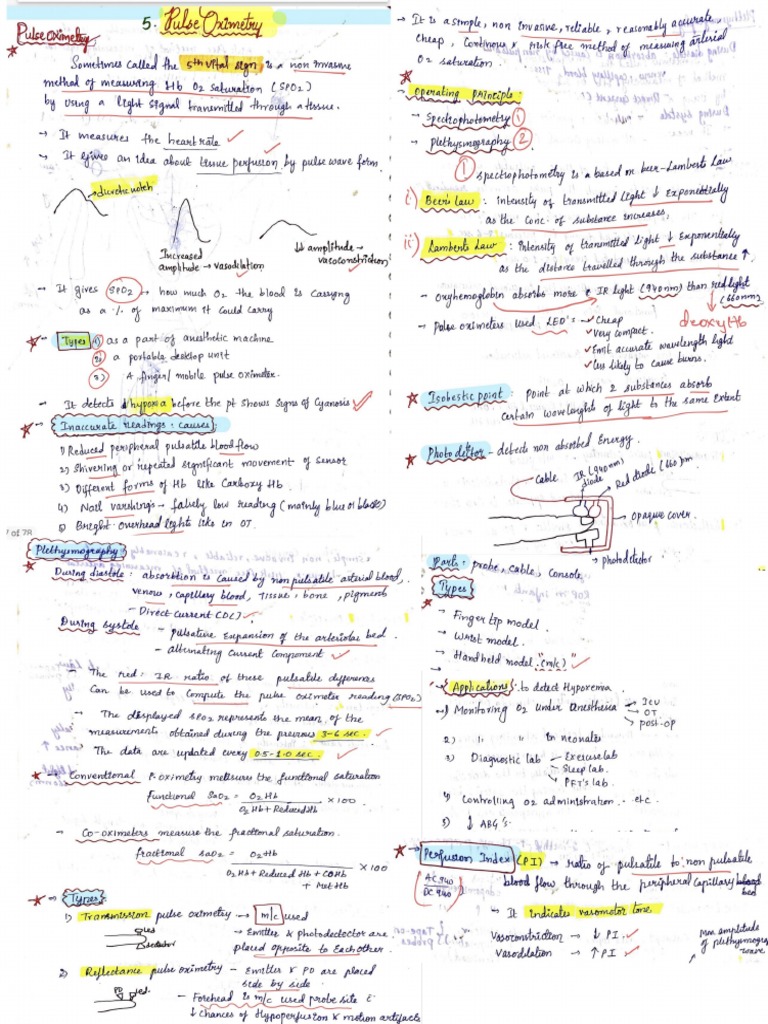 5. Pulse Oximetry
Pulse oximetry
Sometimes called the 5th vital sign is a non invasive
method of measuring Hb O2 saturation (SPO2)
by using a light signal transmitted through a tissue.
→ It measures the heart rate
→ It gives an idea about tissue perfusion by pulse wave form
dicrotic notch
Increased
amplitude → vasodilation
↓↓ amplitude →
vasoconstriction
→ It gives SPO2 → how much O2 the blood is carrying
as a % of maximum it could carry
Types 1) as a part of anesthetic machine
2) a portable desktop unit
3) A finger/mobile pulse oximeter.
→ It detects hypoxia before the pt shows signs of cyanosis
Inaccurate readings: causes
1) Reduced peripheral pulsatile blood flow
2) Shivering or repeated significant movement of sensor
3) Different forms of Hb like Carboxy Hb
4) Nail varnings → falsely low reading (mainly blue or black)
5) Bright overhead lights like in OT.
Plethysmography
During diastole: absorbtion is caused by non pulsatile arterial blood,
venous, capillary blood, tissue, bone, pigments
- Direct current (DC)
During systole - pulsative expansion of the arteriolar bed
- alternating current component
- The red: IR ratio of these pulsatile difference
can be used to compute the pulse oximeter reading (SPO2)
- The displayed SPO2 represents the mean of the
measurements obtained during the previous 3-6 sec.
The data are updated every 0.5-1.0 sec.
→ Conventional P. oximetry measures the functional saturation
Functional SaO2 = O2Hb / O2Hb + Reduced Hb × 100
- Co-oximeters measure the fractional saturation.
fractional SaO2 = O2Hb / O2Hb + Reduced Hb + COHb + Met Hb × 100
Types
1) Transmission pulse oximetry → m/c used
→ Emitter & photodectector are
placed opposite to each other.
led
detector
2) Reflectance pulse oximetry - Emitter & PD are placed
side by side
PD led
- Forehead is m/c used probe site c̄
↓ chances of Hypoperfusion & motion artifacts
→ It is a simple, non invasive, reliable, reasonably accurate,
cheap, continous & risk free method of measuring arterial
O2 saturation.
Operating principle:
→ Spectrophotometry 1
→ Plethysmography 2
1 spectrophotometry is a based on beer-Lamberts Law
i) Beers law: intensity of transmitted light ↓ exponentially
as the conc. of substance increases.
ii) Lamberts Law: Intensity of transmitted light ↓ exponentially
as the distance travelled through the substance ↑
- Oxyhemoglobin absorbs more IR light (940nm) than red light
(660nm)
↓
deoxy Hb
- Pulse oximeters used LED's → cheap
very compact.
Emit accurate wavelength light
less likely to cause burns.
Isobestic point: Point at which 2 substances absorb
certain wavelenghts of light to the same extent
Photo detector - detects non absorbed energy.
cable
IR (940nm) diode
Red diode (660) nm
opaque cover.
photodetector
Parts: probe, cable, console
Types
→ Finger tip model.
→ Wrist model.
→ Handheld model "(m/c)"
Applications: to detect Hypoxemia
1) Monitoring O2 under Anesthesia → ICU
→ OT
→ post-op
2) " " in neonates
3) Diagnostic lab - Exercise lab
- Sleep lab.
- PFT's lab.
4) Controlling O2 administration.. etc
5) ↓ ABG's
Perfusion Index (PI) → ratio of pulsatile to non pulsatile
blood flow through the peripheral capillary bed
(AC 940 / DC 940)
→ It indicates vasomotor tone
Vasoconstriction → ↓ PI
Vasodilation → ↑ PI
amplitude
of plethysmogra
wave